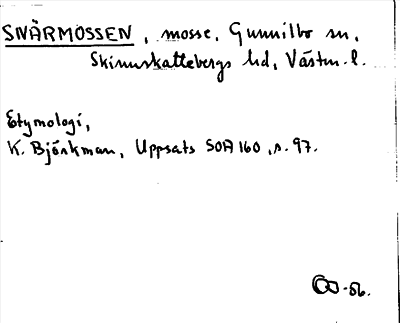 SNÅRMOSSEN, mosse, Gunnilbo sn,
Skinnskattebergs hd, Västm. l.
Etymologi,
K. Björkman, Uppsats SOA 160, s. 97.
-56.